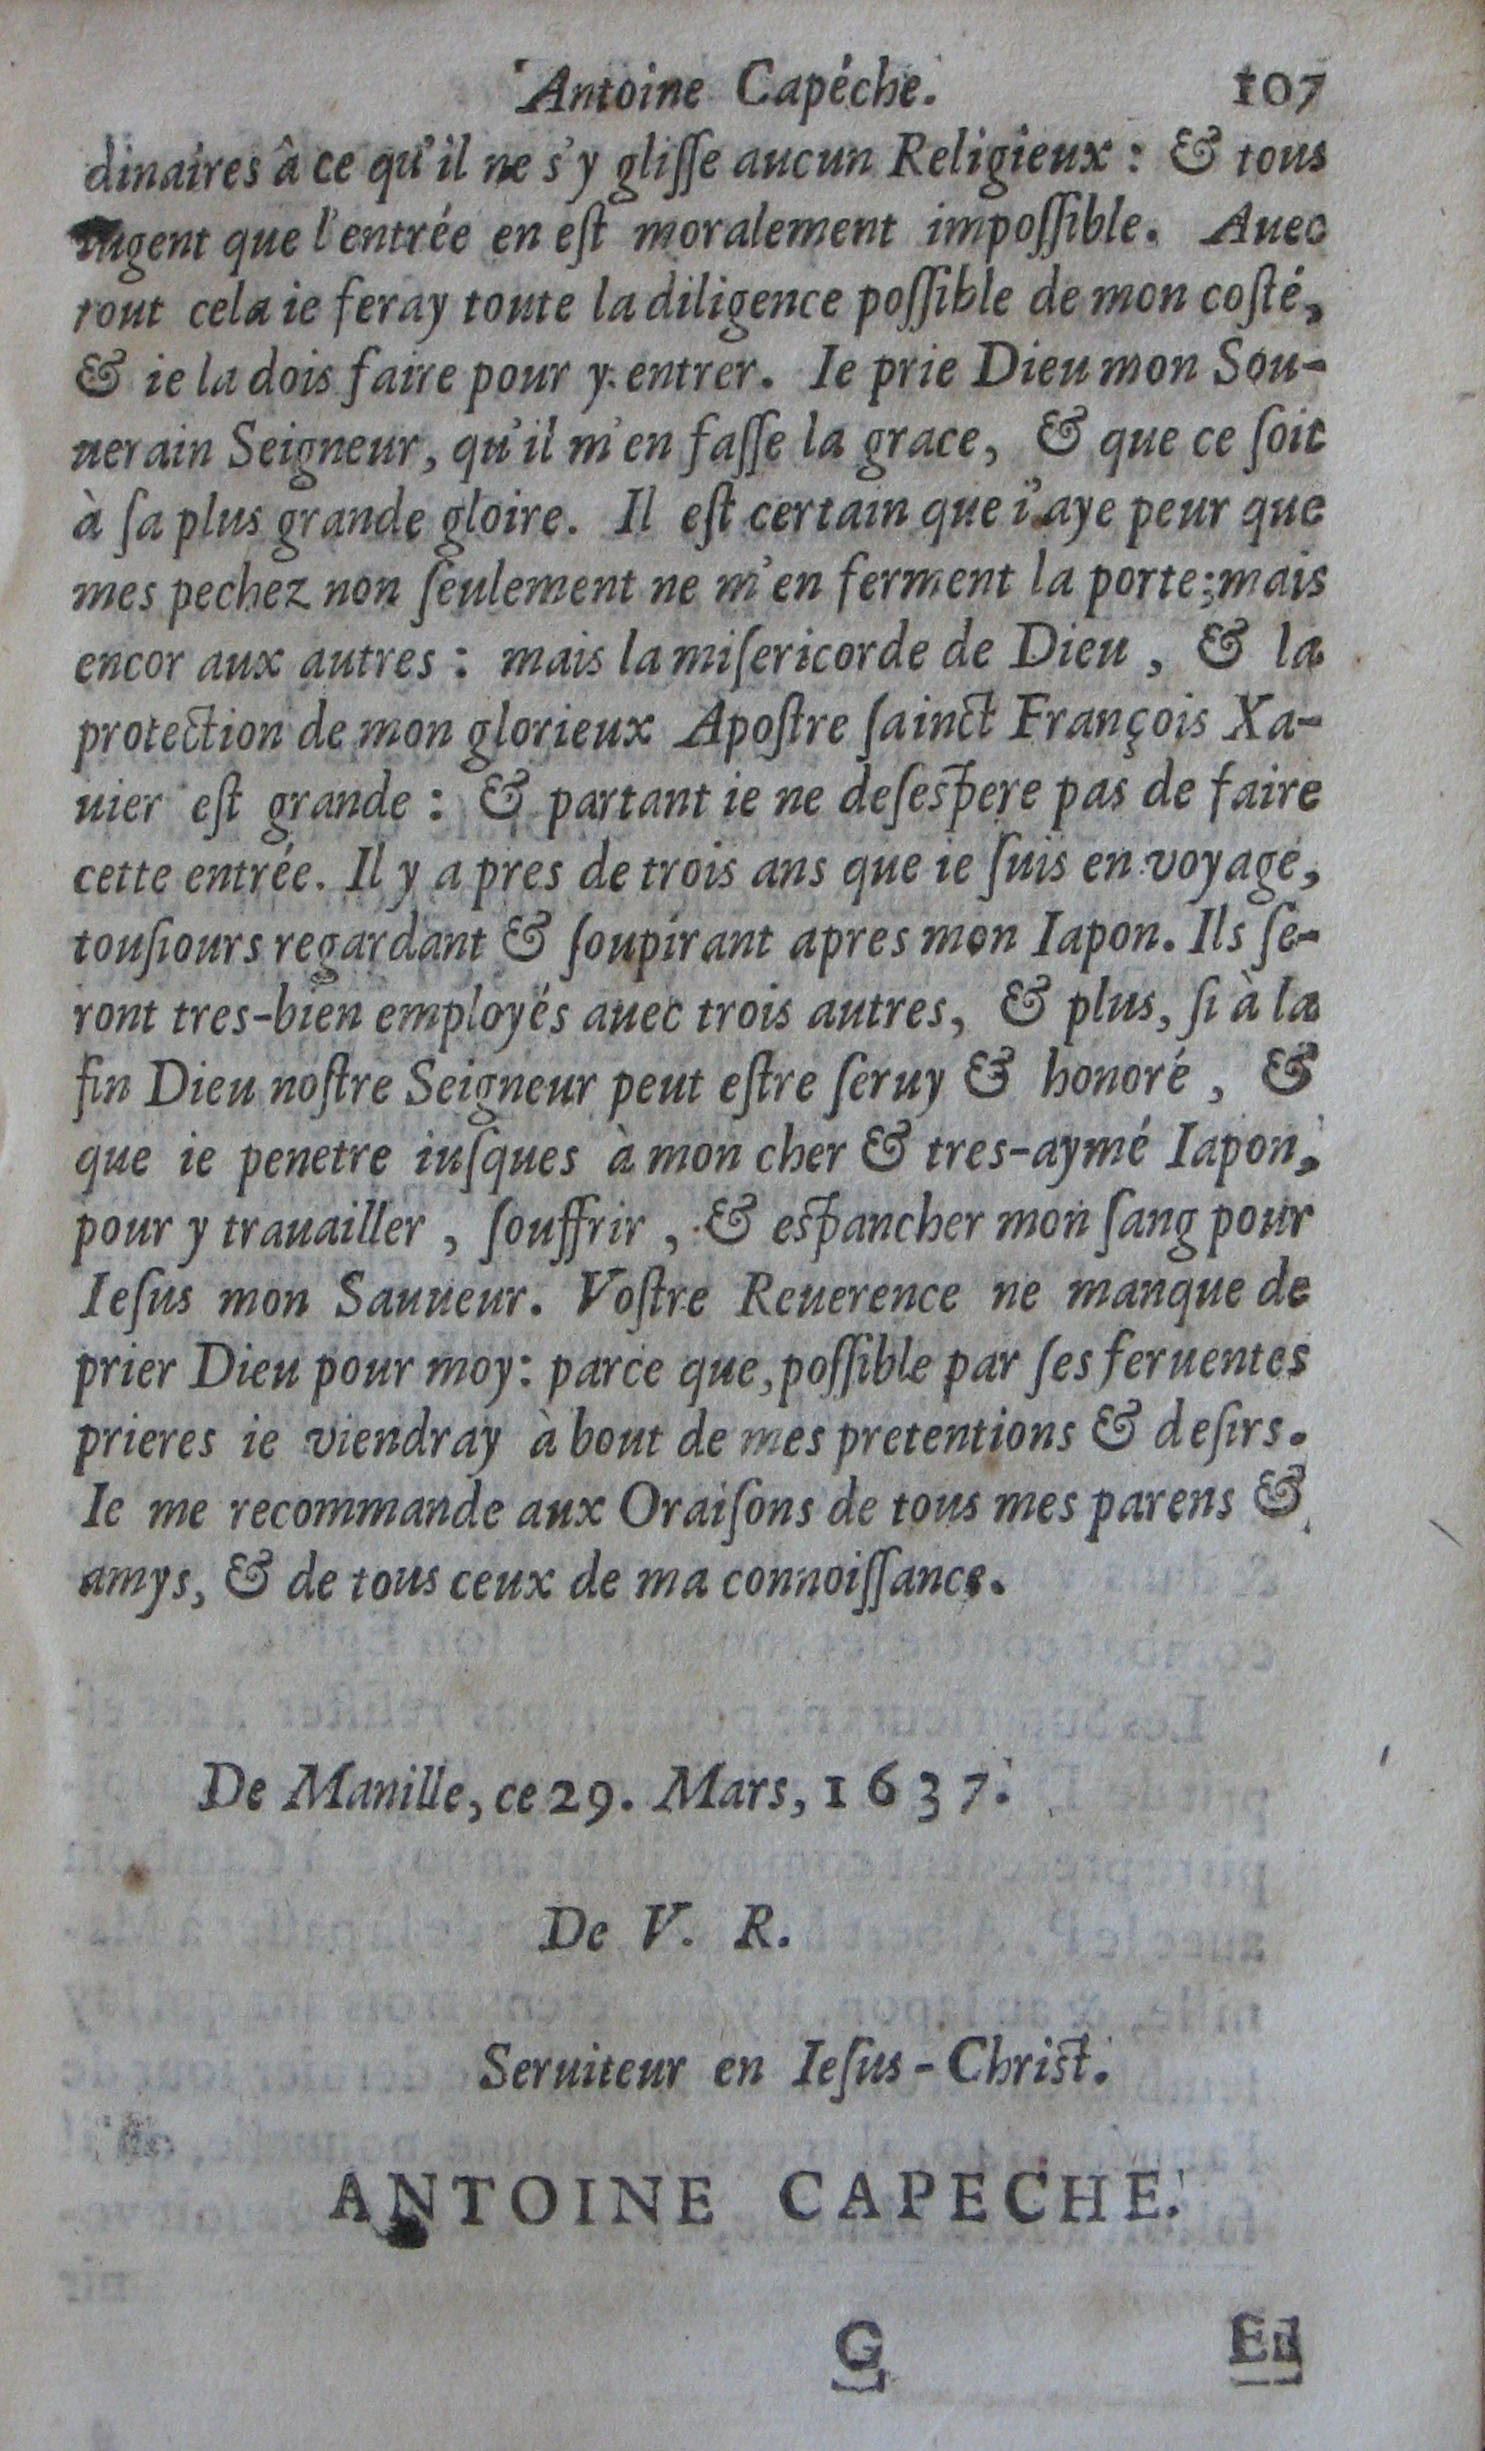 Antoine Capéche. 107
dinaires â ce qu'il ne s'y gliſſe aucun Religieux : & tous
iugent que l'entrée en eſt moralement impoſſible. Auec
tout cela ie feray toute la diligence poſſible de mon coſté,
& ie la dois faire pour y entrer. Ie prie Dieu mon Sou-
uerain Seigneur, qu'il m'en faſſe la grace, & que ce ſoit
à ſa plus grande gloire. Il eſt certain que i'aye peur que
mes pechez non ſeulement ne m'en ferment la porte ; mais
encor aux autres : mais la miſericorde de Dieu, & la
protection de mon glorieux Apoſtre ſainct François Xa-
uier eſt grande : & partant ie ne deſespere pas de faire
cette entrée. Il y a pres de trois ans que ie ſuis en voyage,
touſiours regardant & ſoupirant apres mon Iapon. Ils ſe-
ront tres-bien employés auec trois autres, & plus, ſi à la
fin Dieu noſtre Seigneur peut eſtre ſeruy & honoré, &
que ie penetre iuſques à mon cher & tres-aymé Iapon,
pour y trauailler, ſouffrir, & espancher mon ſang pour
Ieſus mon Sauueur. Voſtre Reuerence ne manque de
prier Dieu pour moy : parce que, poſſible par ſes feruentes
prieres ie viendray à bout de mes pretentions & deſirs.
Ie me recommande aux Oraiſons de tous mes parens &
amys, & de tous ceux de ma connoiſſance.
De Manille, ce 29. Mars, 1637.
De V. R.
Seruiteur en Ieſus-Christ.
ANTOINE CAPECHE.
G